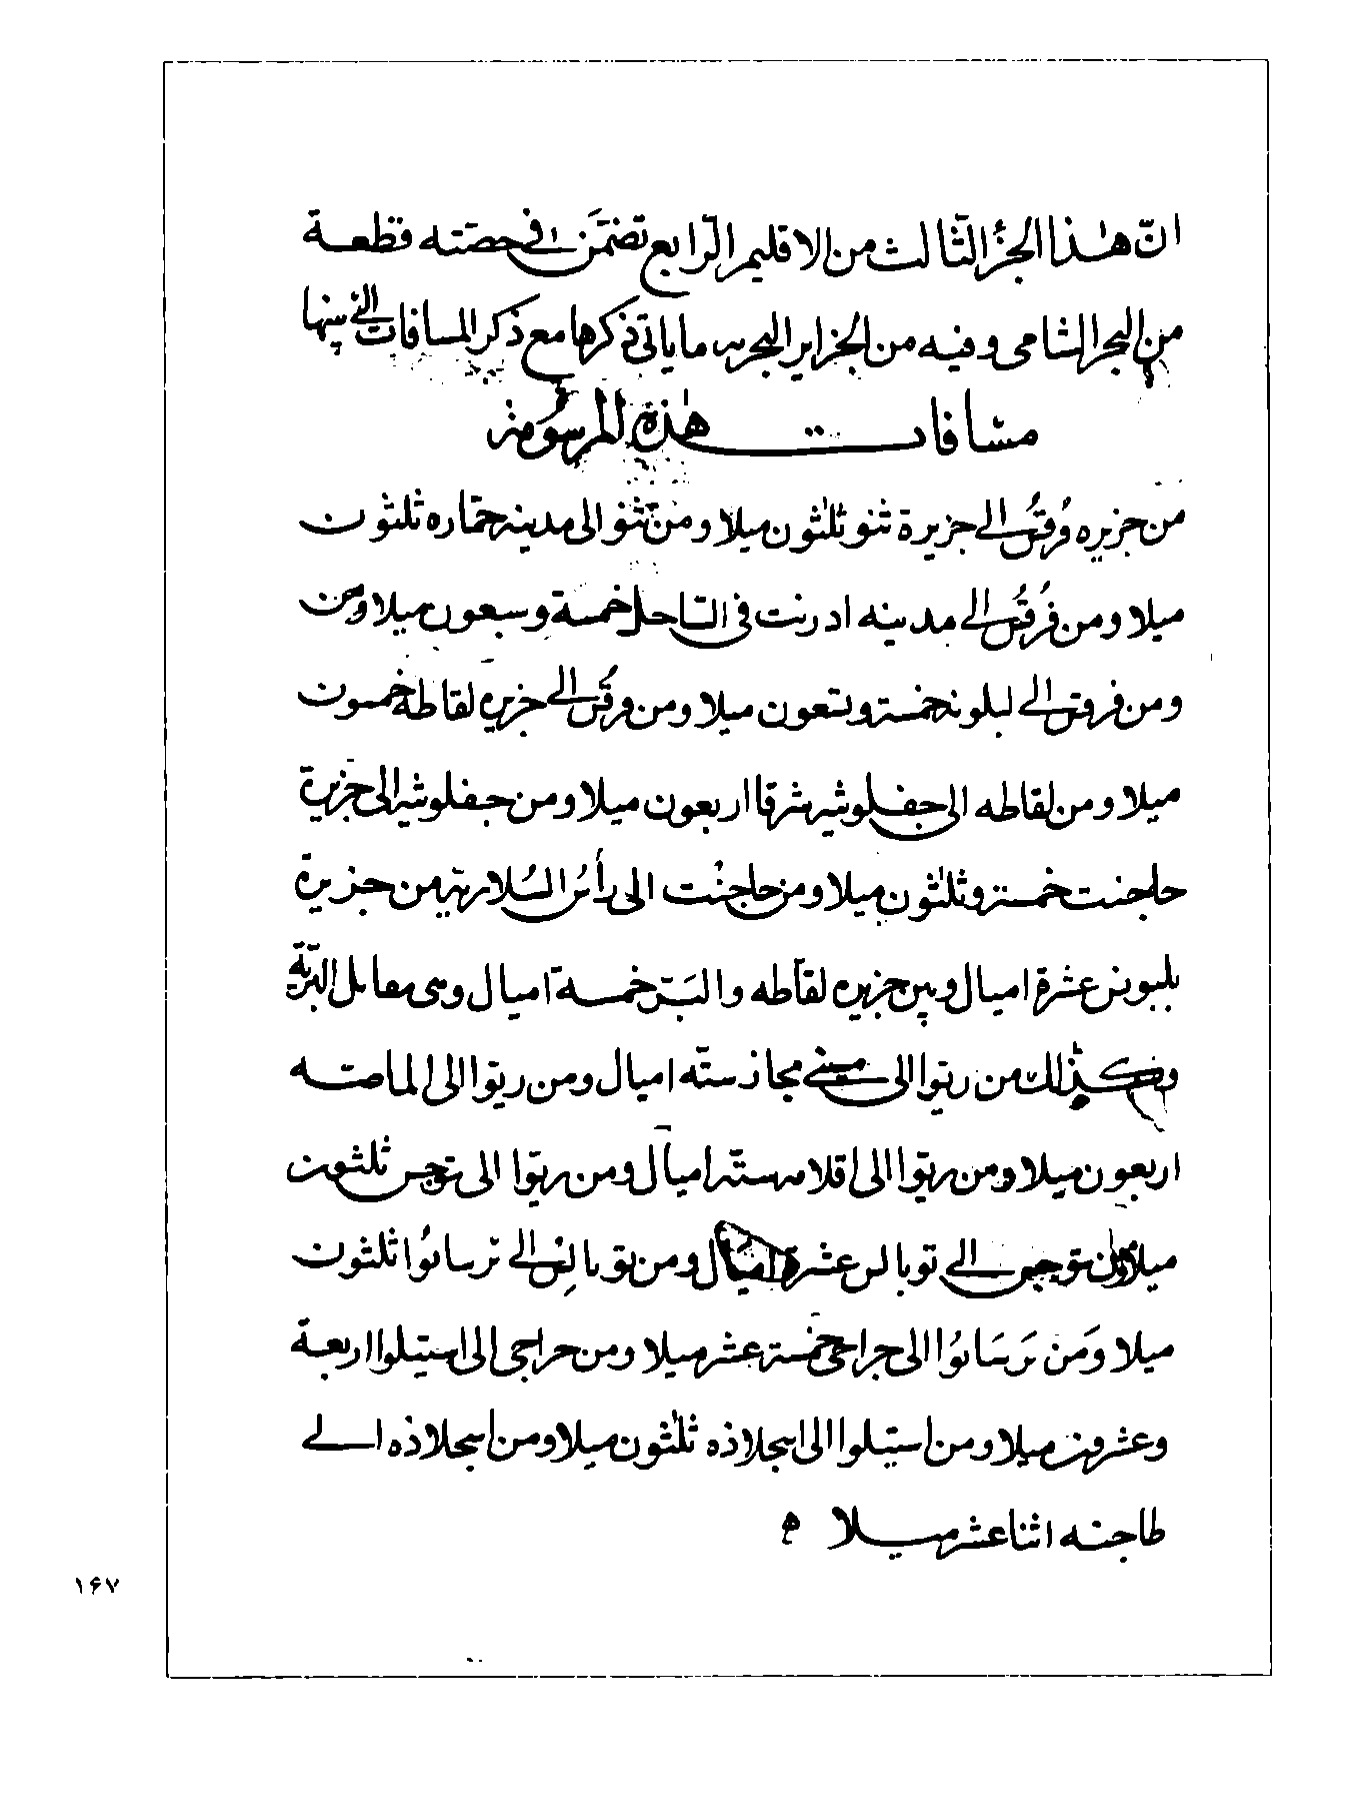 انّ هٰذا الجزؤ الثّالث من الاقليم الرّابع تضمّن فى حصّته قطعة
من البحر الشامى وفيه من الجزاير البحريه ما ياتى ذكرها مع ذكر المسافات التى بينها
مسافات هٰذه المرسومة
من جزيره فرقس الى جزيرة ثنو ثلٰثون ميلا ومن ثنو الى مدينه حمّاره ثلثون
ميلا ومن فُرقُس الى مدينه ادرنت فى السّاحل خمسة وسبعون ميلا ومن
ومن فرقس الى لبلونه خمسة وتسعون ميلا ومن فرقس الى جزيره لقاطه خمسون
ميلا ومن لقاطه الى جفلوشيه شرقا اربعون ميلا ومن جفلوشيه الى جزيرة
حاجنت خمسة وثلٰثون ميلا ومن حاجنت الى رأس السلاريه من جزيرة
بلبونس عشرة اميال وبين جزيره لقاطه والبتر خمسة اميال وهى مقابل البريّة
وكذلك من ريوا الى مسينى مجاز ستّه اميال ومن ريوا الى الماصه
اربعون ميلا ومن ريوا الى اقلامه ستّه اميال ومن ريوا الى توجس ثلثون
ميلا ومن توجس الى توبالس عشرة اميال ومن توبالس الى ترسانوا ثلثون
ميلا ومَن ترسَانوا الى جراجى خمسة عشر ميلا ومن جراجى الى استيلوا اربعة
وعشرون ميلا ومن استيلوا الى اسجلاذه ثلٰثون ميلا ومن اسجلاذه الى
طاجنه اثنا عشر ميلا ه
١٤٧